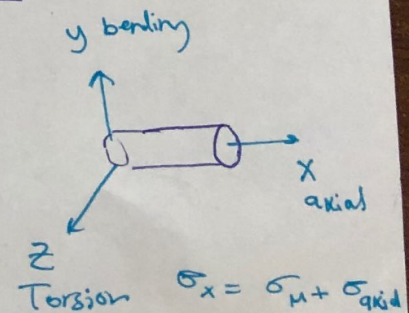 y bending
X
axial
Z
Torsion
σx = σM + σaxial